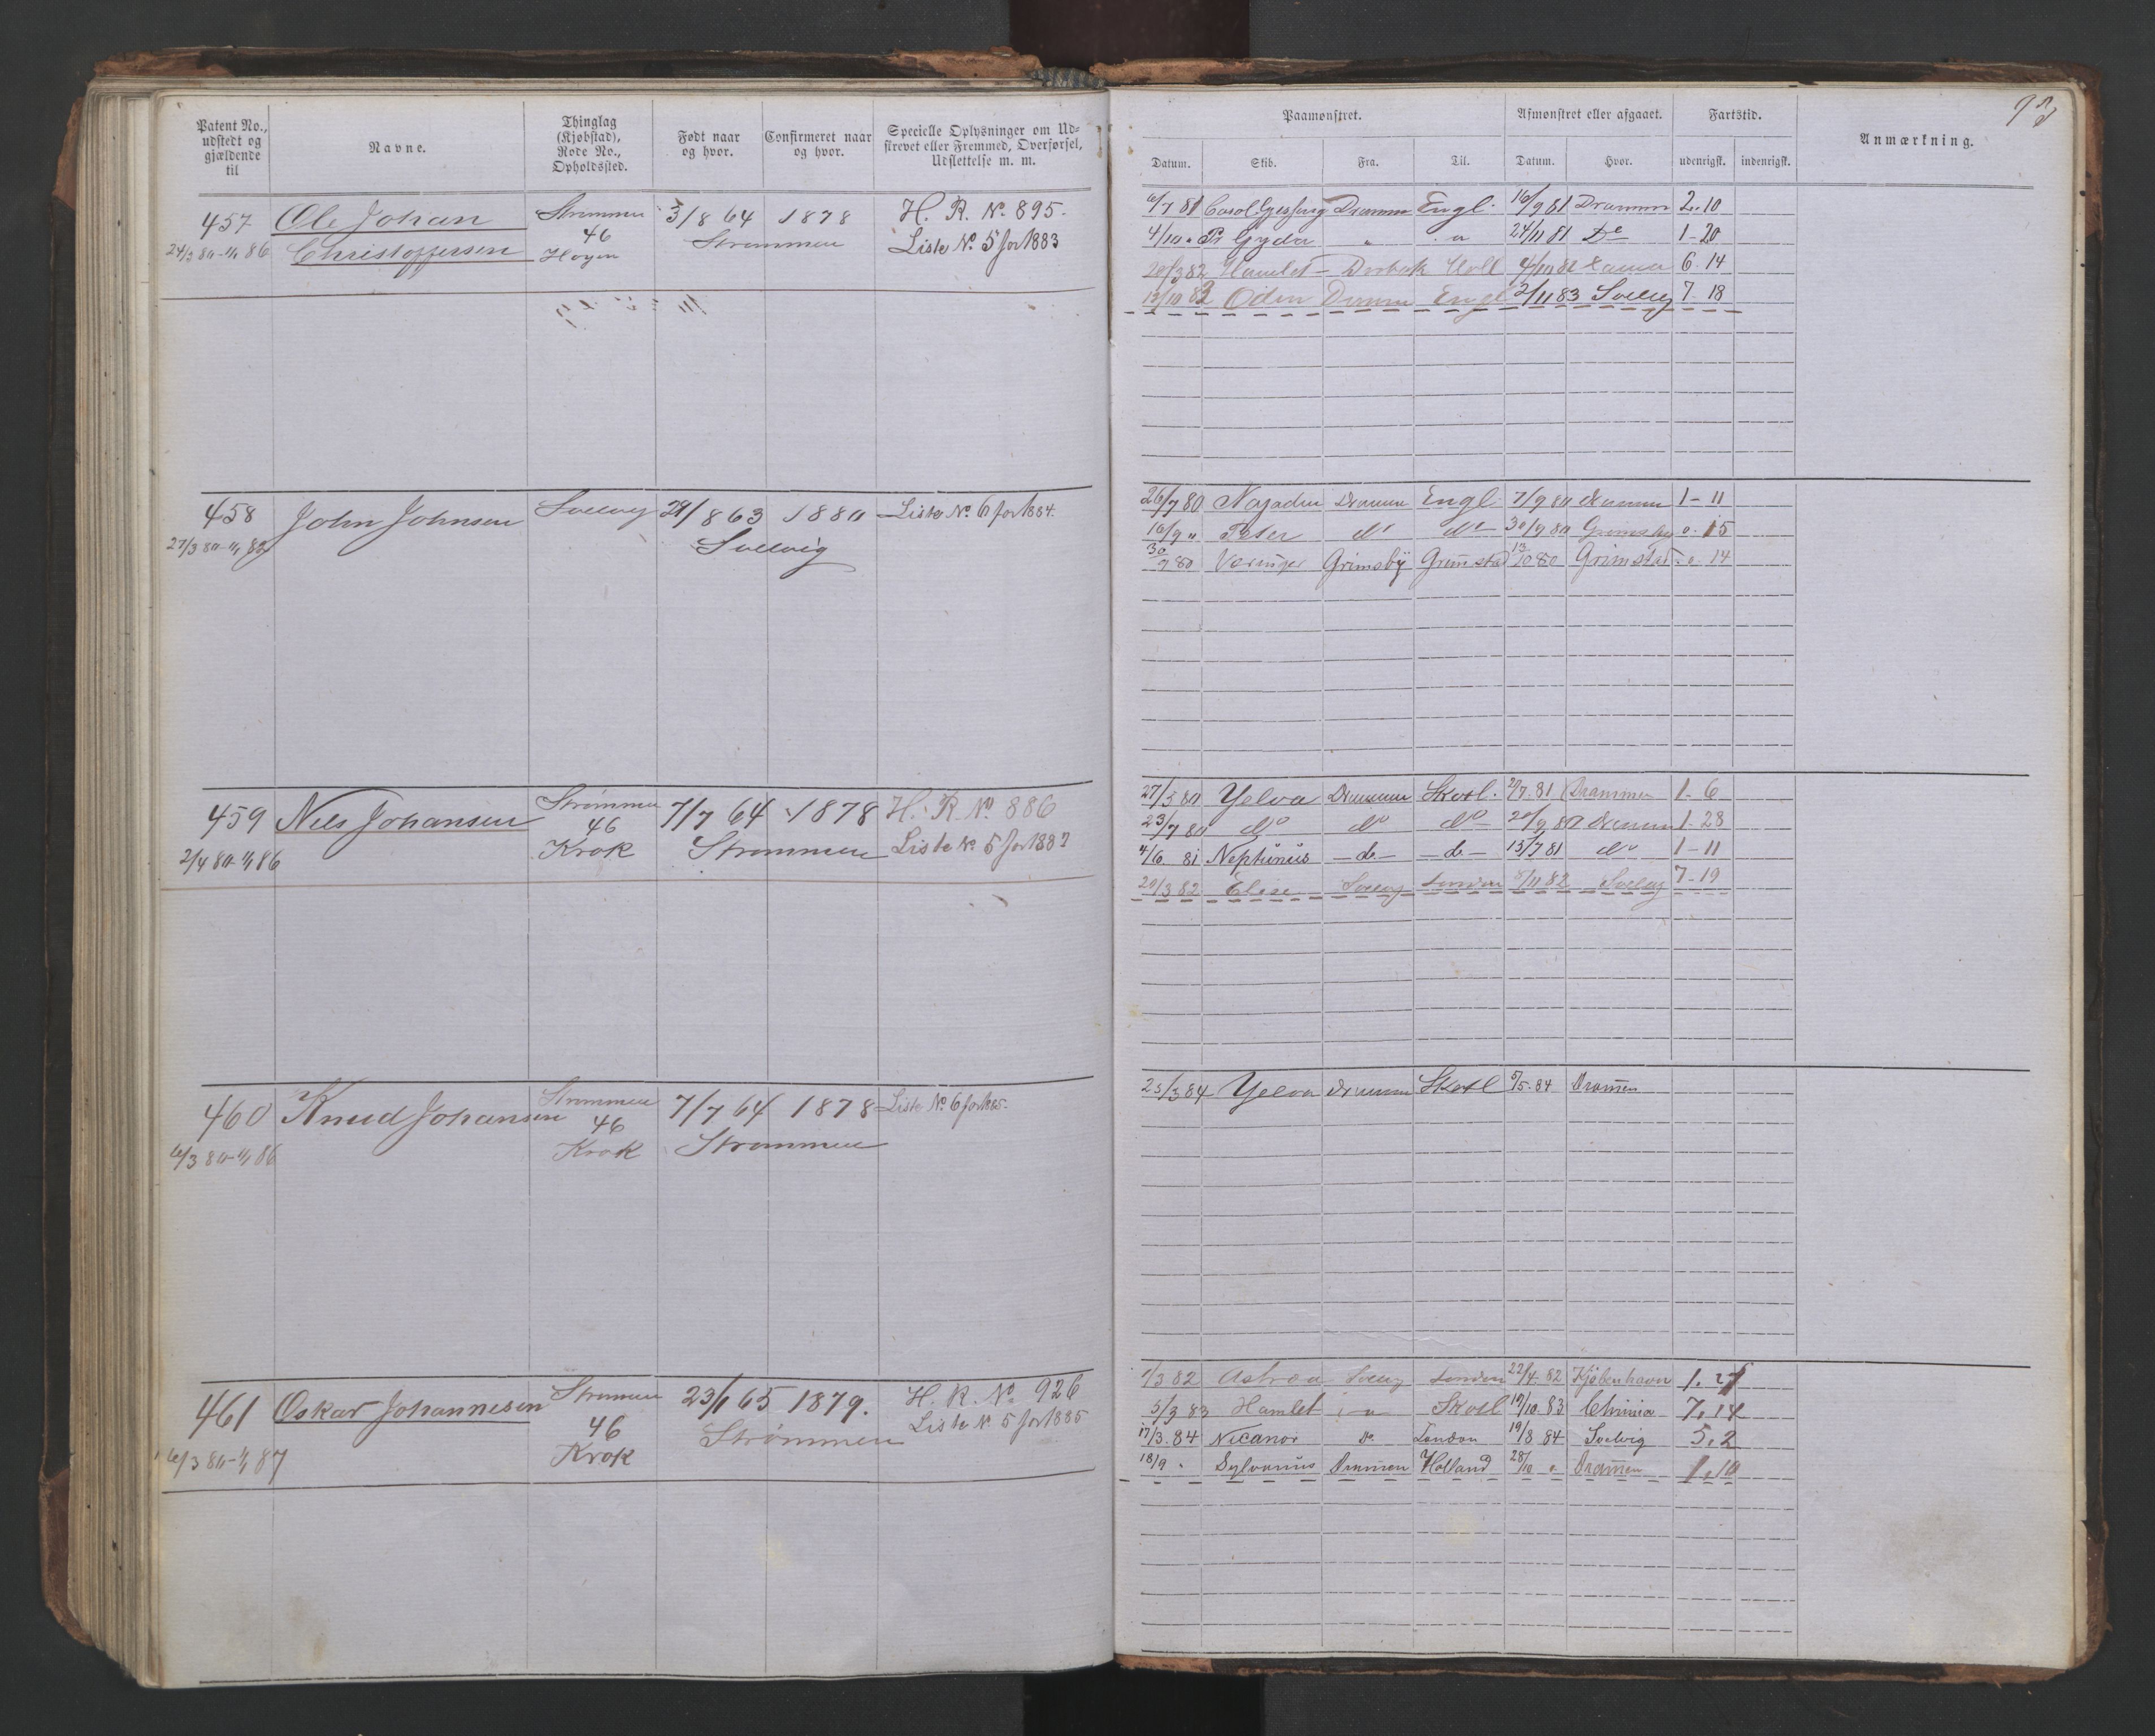 93
Patent No., udstedt og gjældende til
Navne.
Thinglag (Kjøbstad), Rode No., Opholdssted.
Født naar og hvor.
Confirmeret naar og hvor.
Specielle Oplysninger om Udstrevet eller Fremmed, Overførsel, Udslettelse m. m.
Paamønstret.
Afmønstret eller afgaaet.
Fartstid.
Anmærkning.
Datum. Skib. Fra. Til. Datum. Hvor. udenrigsk. indenrigsk.
457 Ole Johan Strømmen 3/8 64 1878 H. R. No. 895.
24/3 80-1/1 86 Christoffersen 46 Strømmen Liste No. 5 for 1883
Høyen
6/7 81 Dramm Engl. 16/9 81 Dramm 2.10
4/10 " Gyda " " 24/11 81 Do 1-20
20/3 82 Hamlet Holl 6.14
13/10 83 Oden Dramm Engl 2/11 83 Svelvig 7-18
458 John Johnsen Svelvig 29/8 63 1880 Liste No. 6 for 1884.
27/3 80-1/1 Svelvig
26/7 80 Najaden Dramm Engl. 7/9 80 Dramm 1-11
16/9 " Peter do do 30/9 80 Grimsby 0.15
30/9 80 Væringer Grimsby Grimstad 13/10 80 Grimstad 0.14
459 Nils Johansen Strømmen 7/7 64 1878 H. R. No. 886
2/4 80-1/1 86 46 Krok Strømmen Liste No. 5 for 1883
27/5 80 Yelva Dramm Skotl. 2/7. 81 Drammen 1-6
23/7 80 do do do 20/9 80 Dramm 1-23
4/6 81 Neptunus -do- -do- 15/7 81 do 1-11
20/3 82 Elise Svelvig London /11 82 Svelvig 7-19
460 Knud Johansen Strømmen 7/7 64 1878 Liste No. 6 for 1885.
6/3 80-1/1 86 46 Krok Strømmen
25/3 84 Yelva Dramm Skotl 5/5. 84 Drammen
461 Oskar Johannesen Strømmen 23/1 65 1879. H. R. No. 926
6/3 80-1/1 87 46 Krok Strømmen Liste No. 5 for 1885
1/3 82 Astræa Svelvig London 22/4. 82 Kjøbenhavn 1.21
5/3 83 Hamlet " Skotl 19/10. 83 Chrinia 7.14
17/3. 84 Nicanor Do London 19/8 84 Svelvig 5.2
18/9 " Sylvanus Drammen Holland 28/10 " Drammen 1.10